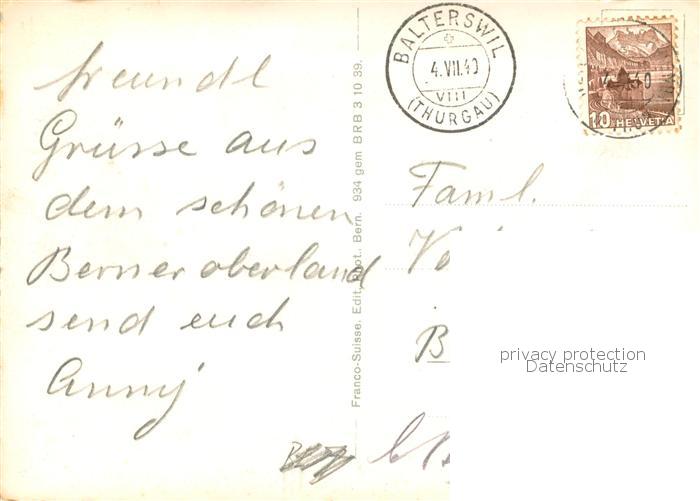 freundl
Grüsse aus
dem schönen
Berner oberland
send euch
Anny
Franco-Suisse. Edit. Phot.. Bern. 934 gem BRB 3 10 39.
BALTERSWIL
4.VII.40
VIII
(THURGAU)
10 HELVETIA
Faml.
Vo
B
privacy protection
Datenschutz